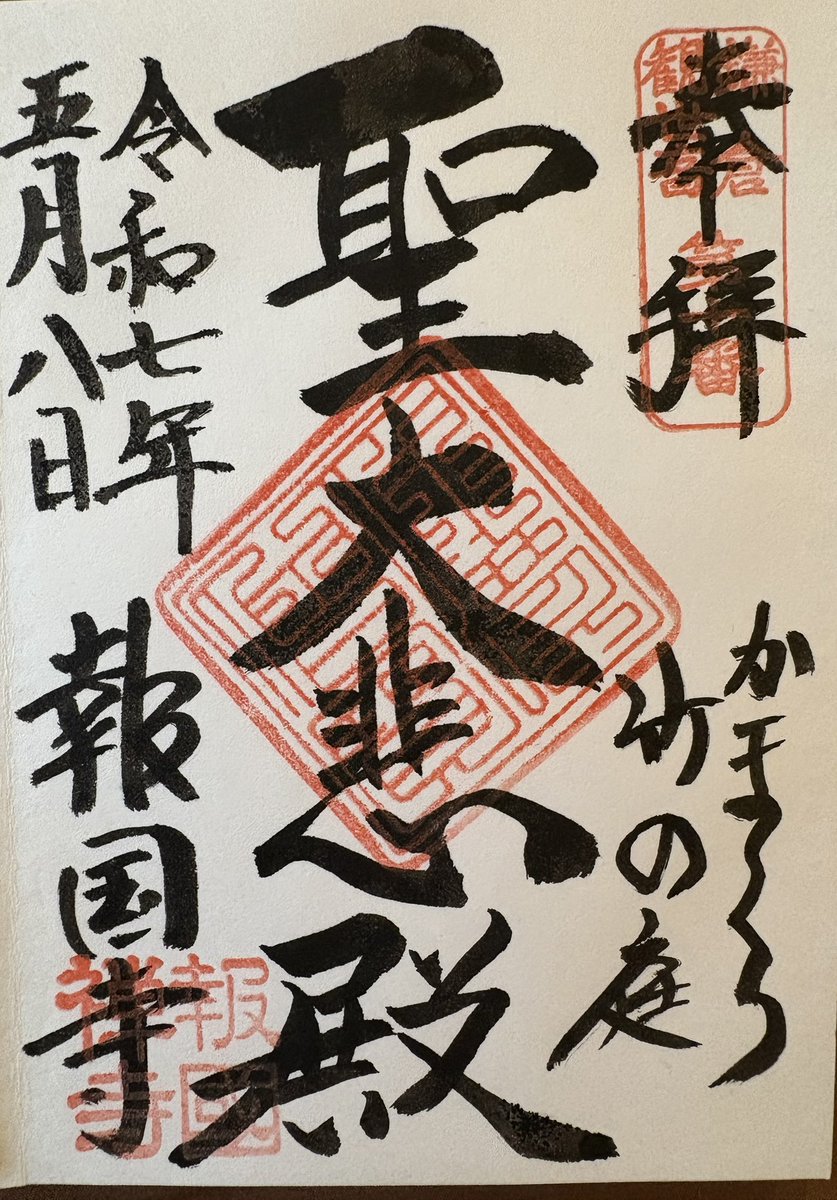 奉拝
鎌倉
観世音
かまくら
竹の庭
聖大悲殿
令和七年
五月八日
報国寺
報國
禅寺